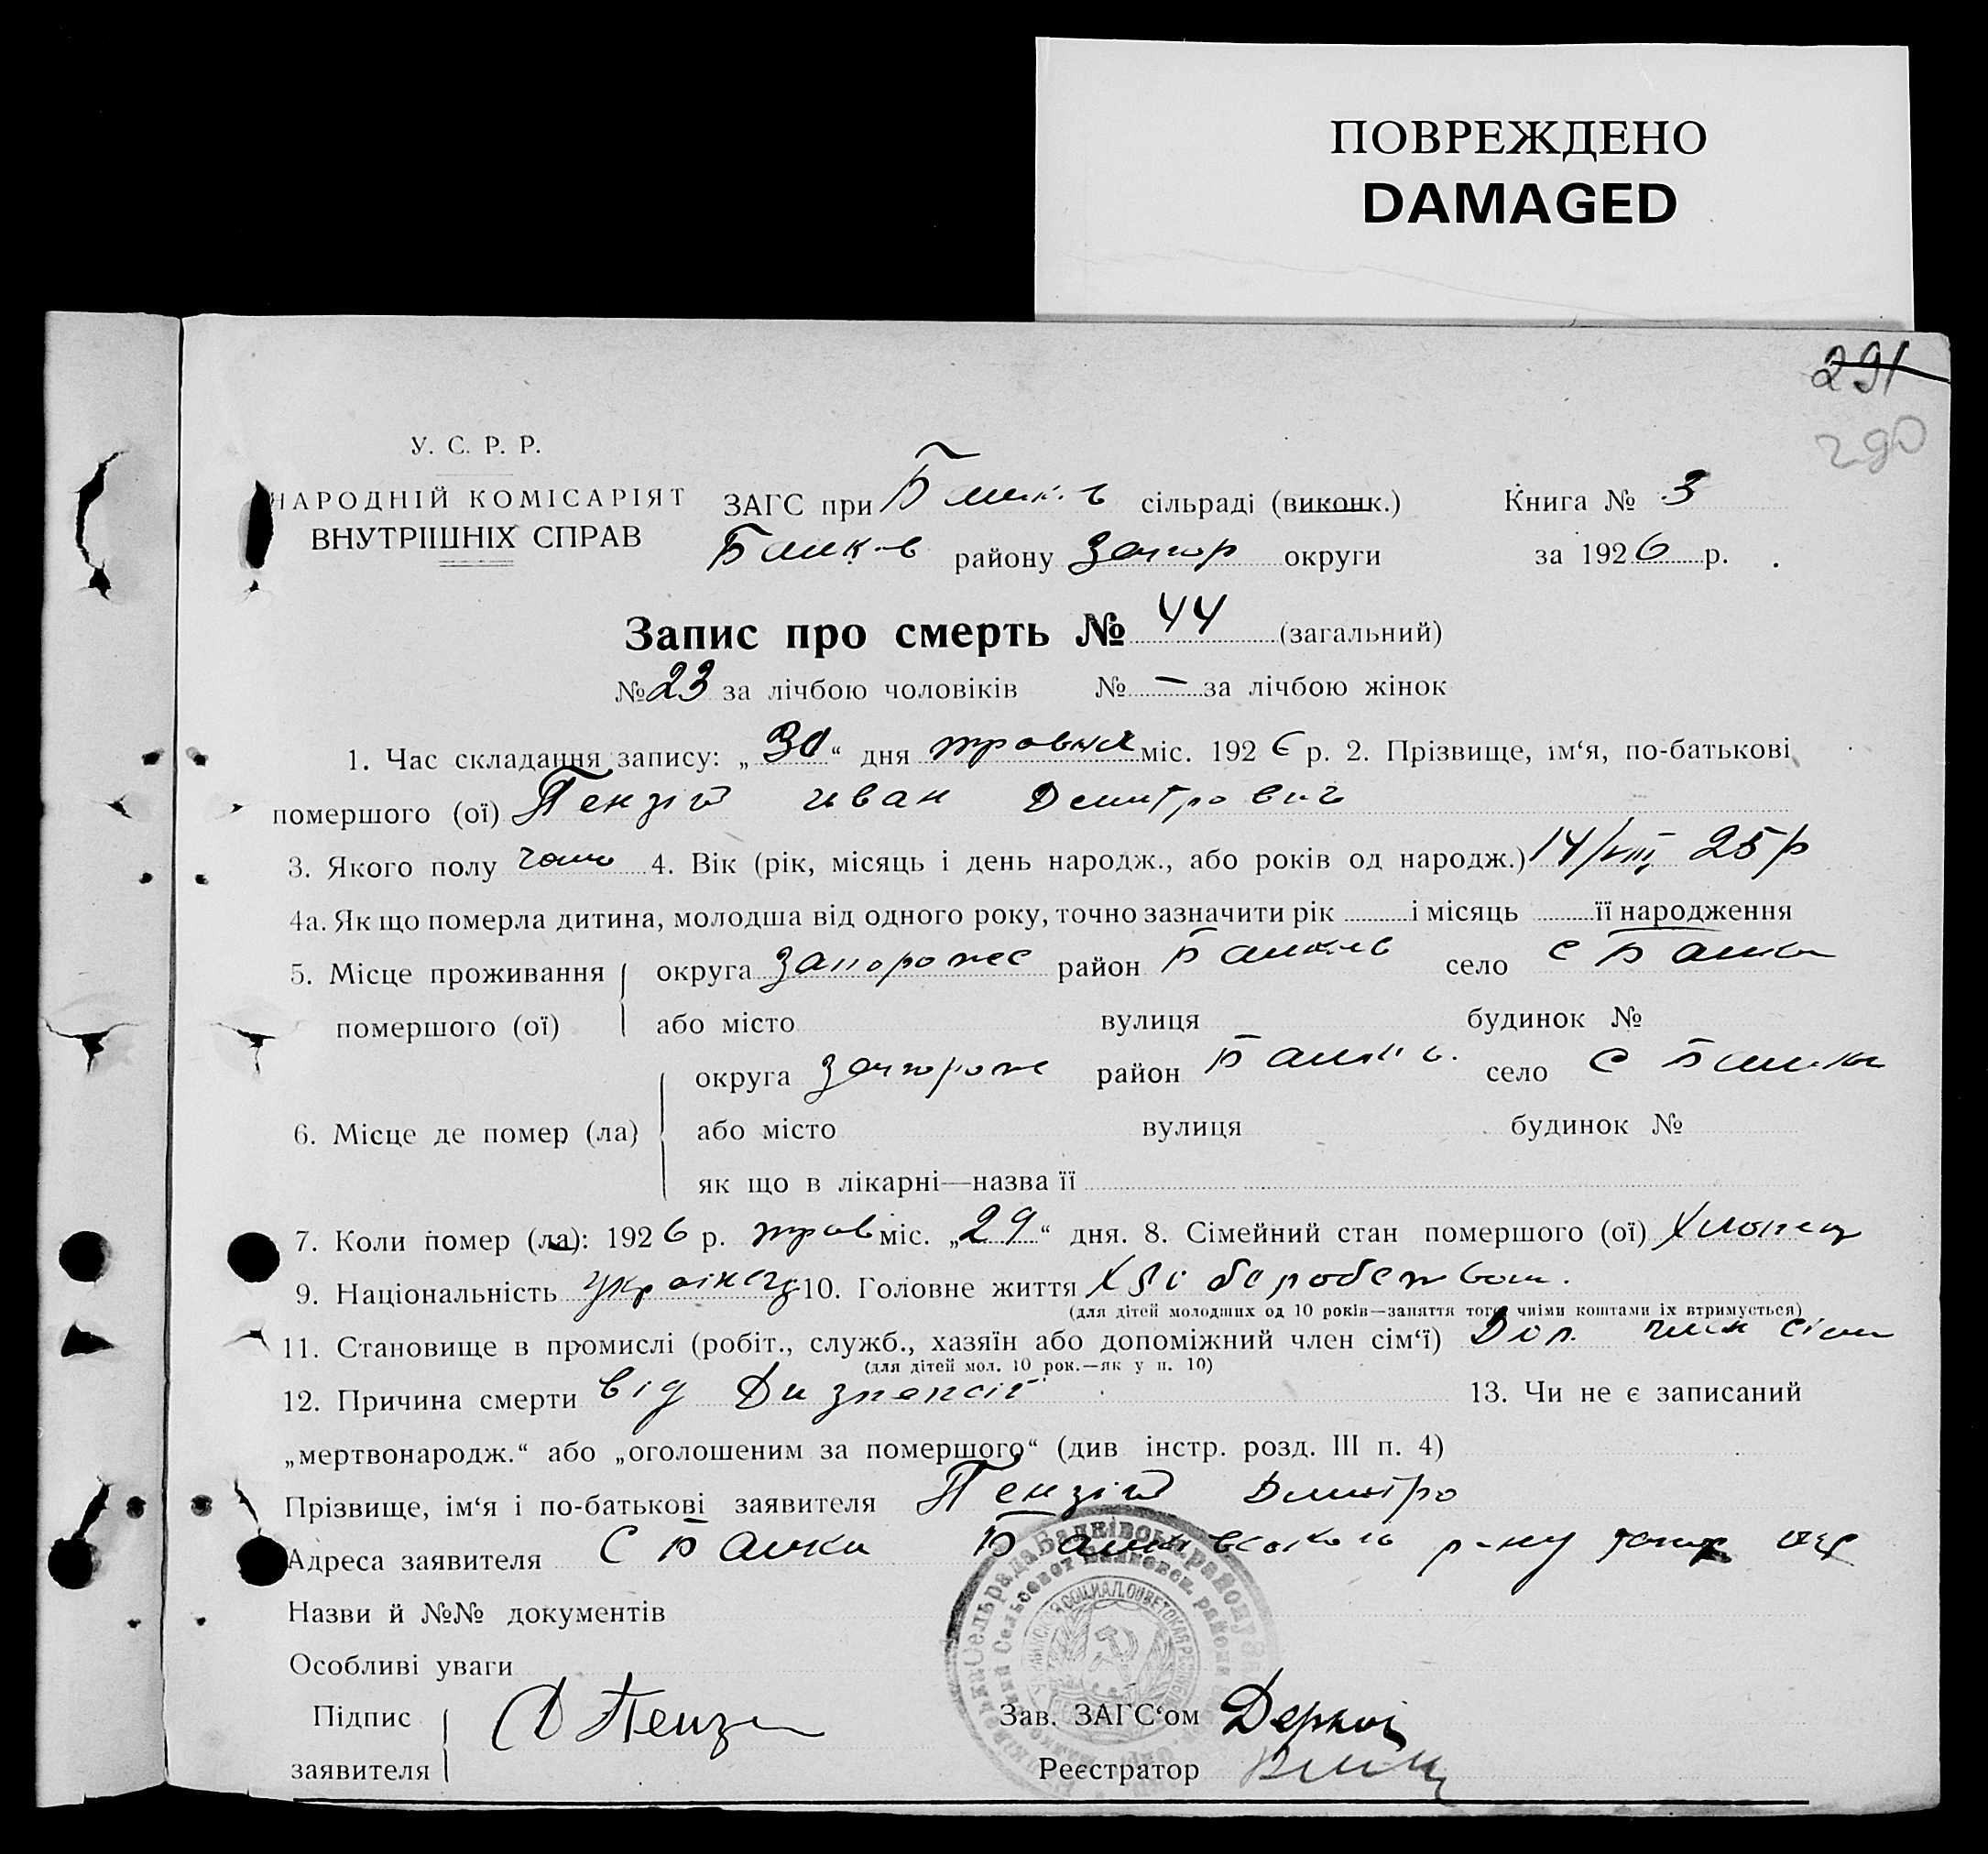 ПОВРЕЖДЕНО
DAMAGED
291
290
У. С. Р. Р.
НАРОДНІЙ КОМІСАРІЯТ
ВНУТРІШНІХ СПРАВ
ЗАГС при сільраді (виконк.) Книга № 3
району Запор округи за 1926 р.
Запис про смерть № 44 (загальний)
№ 23 за лічбою чоловіків № — за лічбою жінок
1. Час складання запису: „30“ дня травня міс. 1926 р. 2. Прізвище, ім‘я, по-батькові
помершого (ої) Пензій Иван Дмитрович
3. Якого полу чоло 4. Вік (рік, місяць і день народж., або років од народж.) 14/VIII 25 р
4а. Як що померла дитина, молодша від одного року, точно зазначити рік і місяць її народження
5. Місце проживання округа Запорожс район Балків село С Балки
помершого (ої) або місто вулиця будинок №
округа Запорож район Балків. село С Балки
6. Місце де помер (ла) або місто вулиця будинок №
як що в лікарні—назва її
7. Коли помер (ла): 1926 р. трав міс. „29“ дня. 8. Сімейний стан помершого (ої) Хлопець
9. Національність Українець 10. Головне життя Хліборобством.
(для дітей молодших од 10 років—заняття того, чиїми коштами їх втримується)
11. Становище в промислі (робіт., служб., хазяїн або допоміжний член сім‘ї) Доп. член сімї
(для дітей мол. 10 рок.—як у п. 10)
12. Причина смерти від Дизпепсії 13. Чи не є записаний
„мертвонародж.“ або „оголошеним за помершого“ (див інстр. розд. III п. 4)
Прізвище, ім‘я і по-батькові заявителя Пензій Дмитро
Адреса заявителя С Балки Балківського р-ну Запор окр
Назви й №№ документів
Особливі уваги
Підпис заявителя Д Пензі
Зав. ЗАГС‘ом
Реєстратор